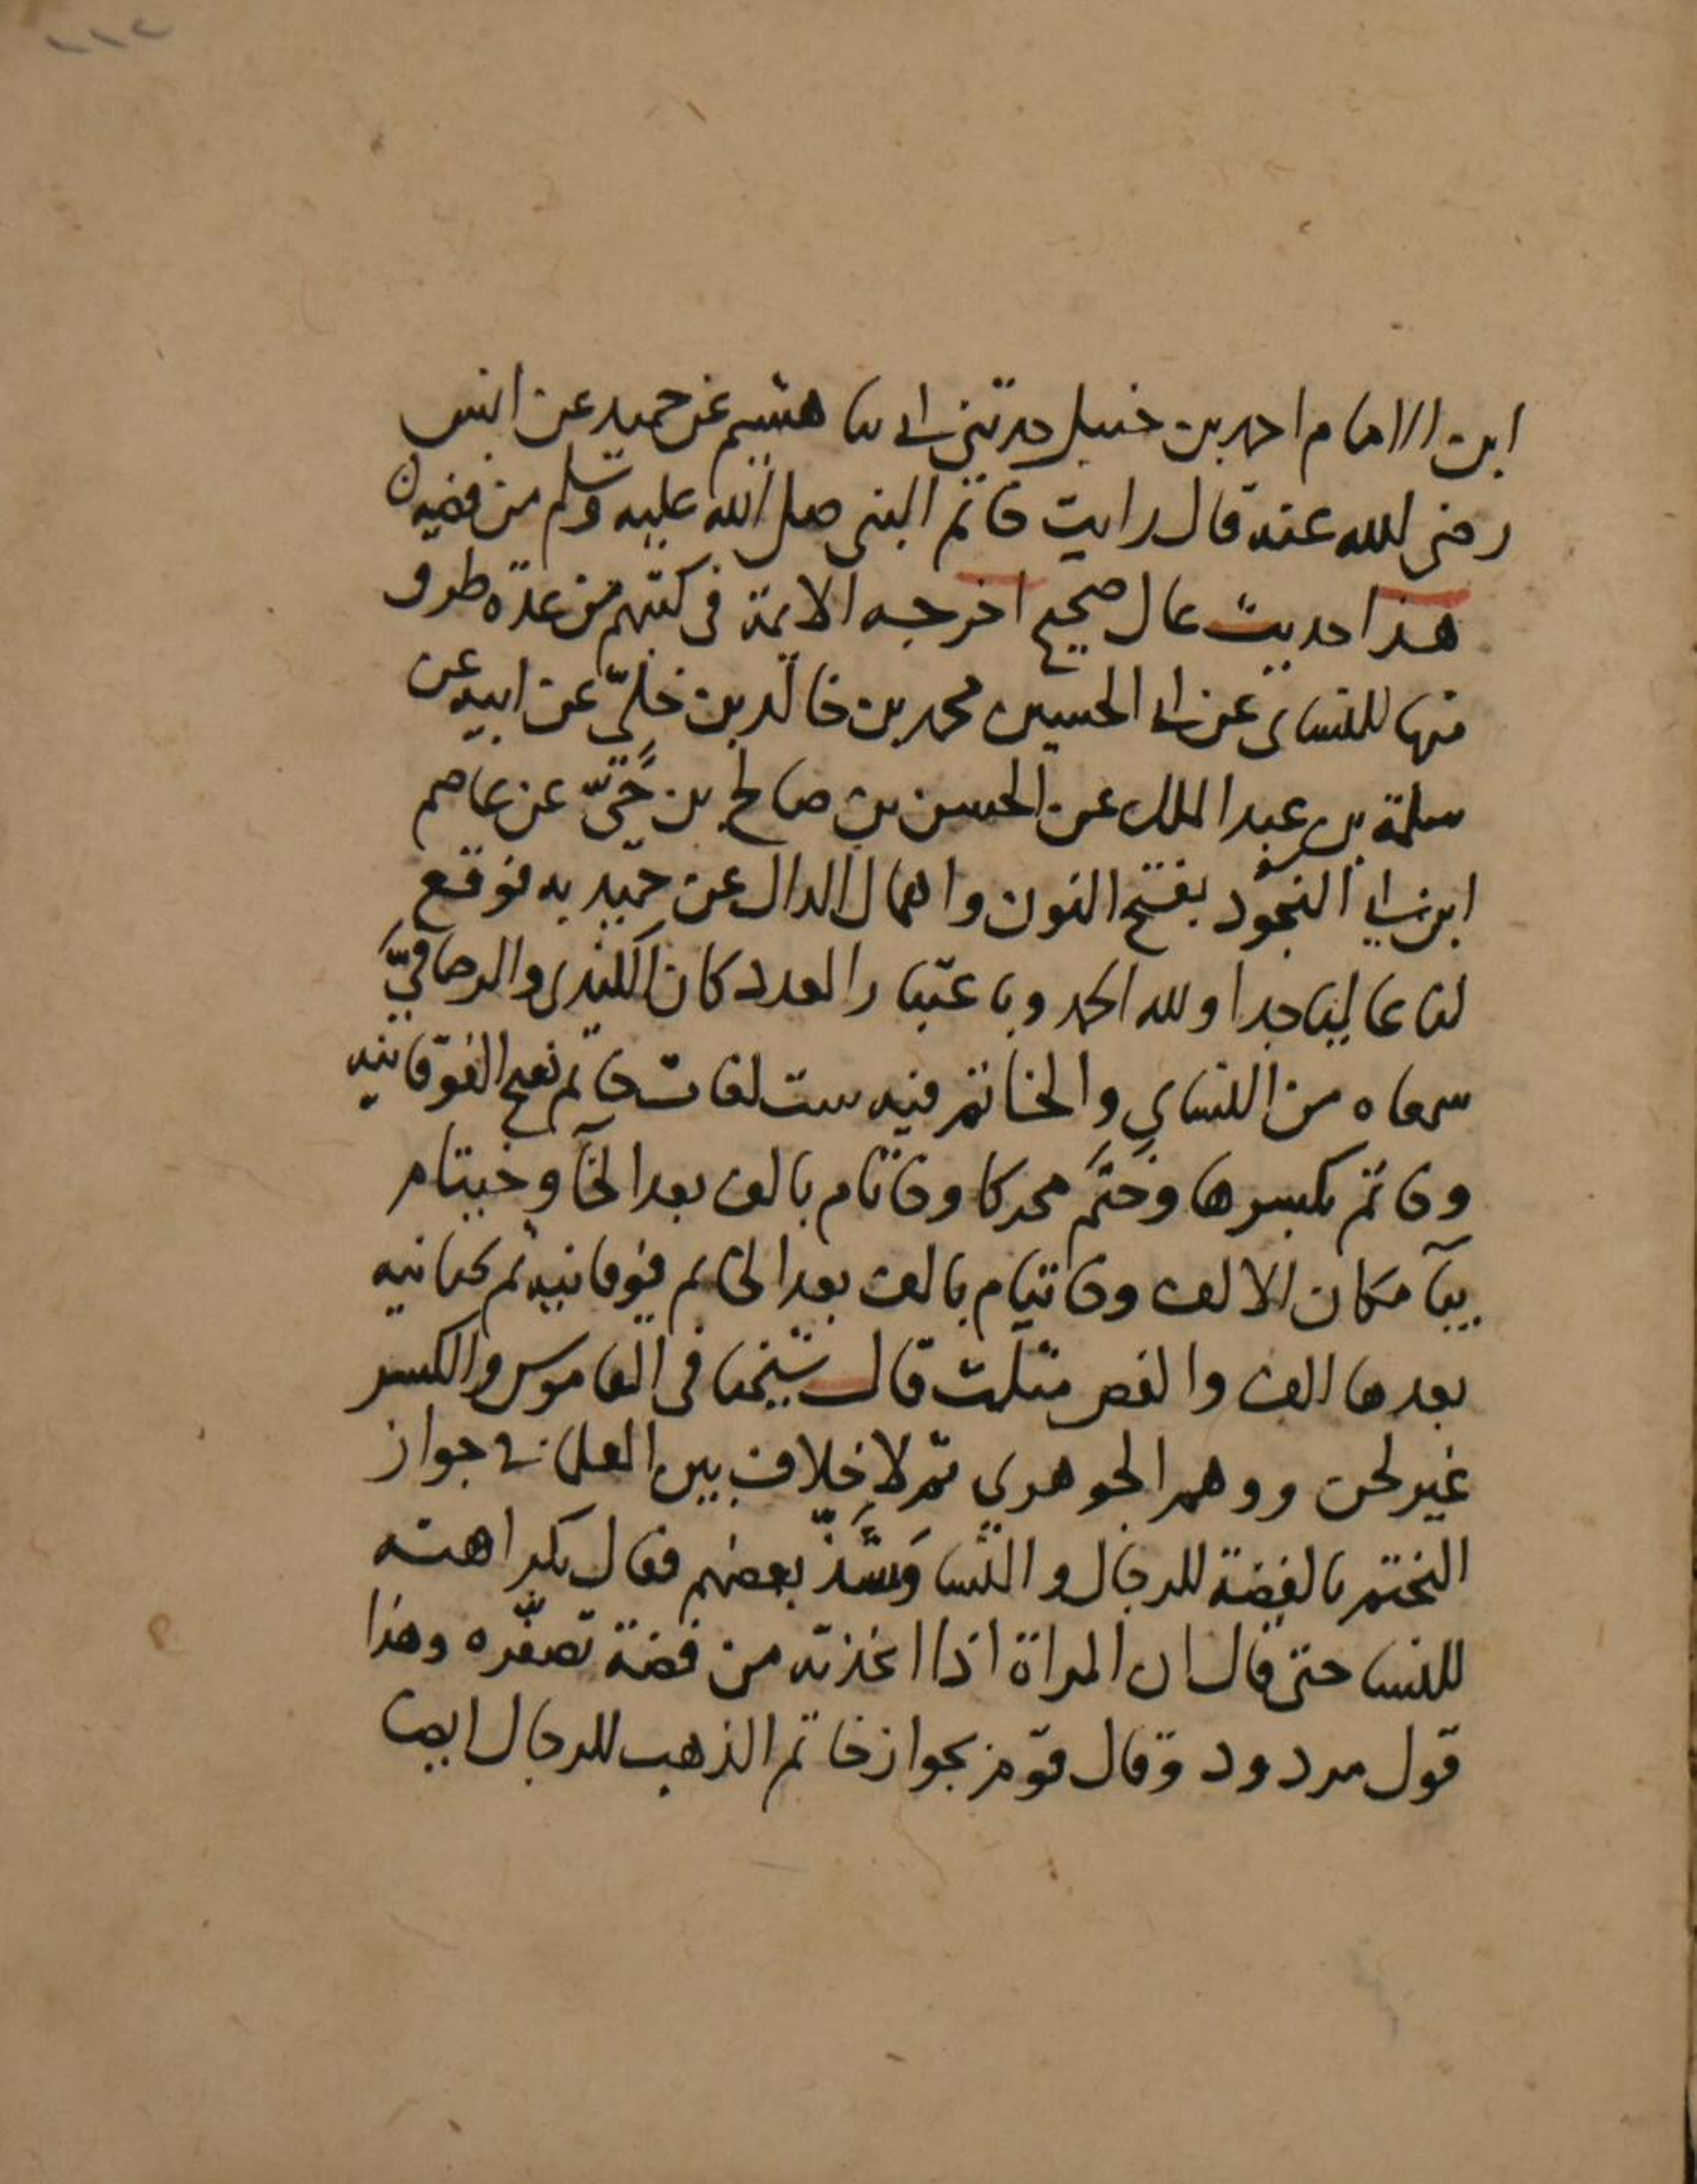 ابن الامام احمد بن حنبل حدثني ابي ثنا هشيم عن حميد عن انس
رضي الله عنه قال رايت خاتم النبي صلى الله عليه وسلم من فضة
هذا حديث عال صحيح اخرجه الايمة في كتبهم من عدة طرق
منها للنساي عن ابي الحسين محمد بن خالد بن خَلِيّ عن ابيه عن
سلمة بن عبد الملك عن الحسن بن صالح بن حَيّ عن عاصم
ابن ابي النجود بفتح النون واهمال الدال عن حميد به فوقع
لنا عاليا جدا ولله الحمد وباعتبار العدد كان الكندي والرصافيَّ
سمعاه من النساي والخاتم فيه ست لغات خاتم بفتح الفوقانية
وخاتم بكسرها وخَتَم محركا وخاتام بالف بعد الخآ وخيتام
بيآ مكان الالف وخاتيام بالف بعد الخا ثم فوقانية ثم تحتانية
بعدها الف والفص مثلث قال شيخنا في القاموس والكسر
غير لحن ووهم الجوهري ثم لا خلاف بين العلما في جواز
التختم بالفضة للرجال والنسا وَشَذَّ بعضهم فقال بكراهته
للنسا حتى قال ان المراة اذا اتخذته من فضة تصفّره وهذا
قول مردود وقال قوم بجواز خاتم الذهب للرجال ايضا